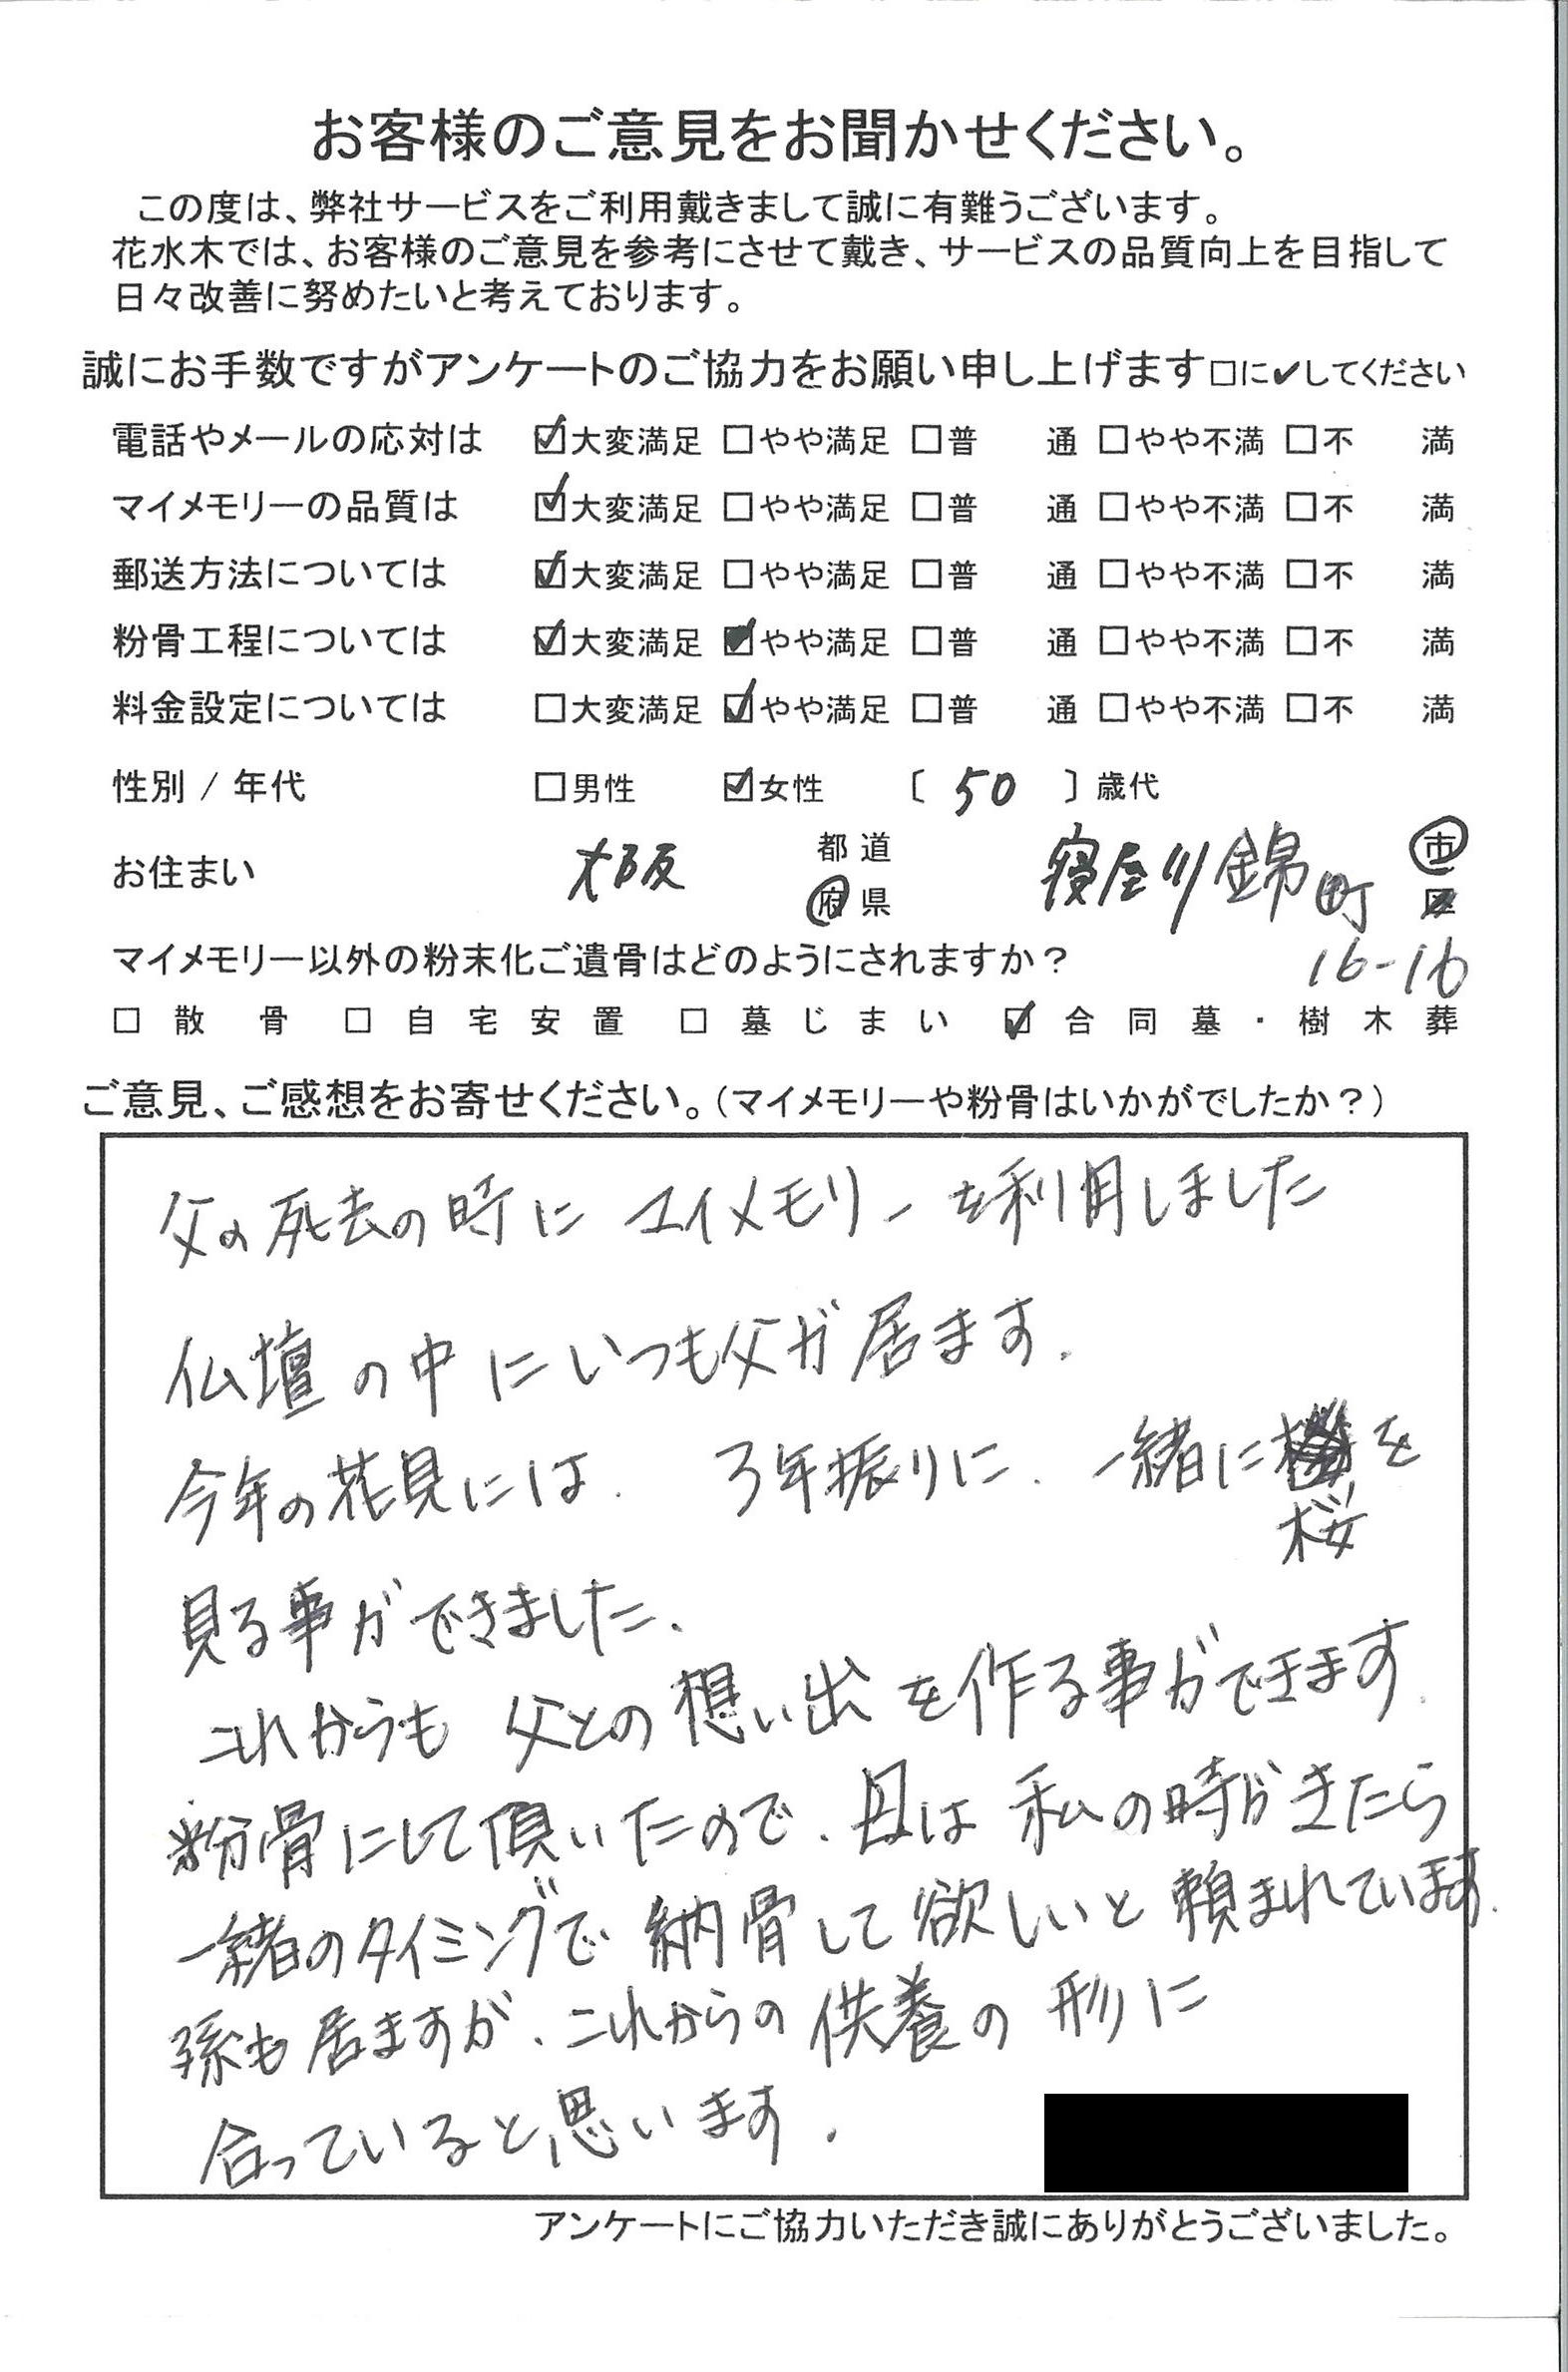 お客様のご意見をお聞かせください。
この度は、弊社サービスをご利用戴きまして誠に有難うございます。
花水木では、お客様のご意見を参考にさせて戴き、サービスの品質向上を目指して
日々改善に努めたいと考えております。
誠にお手数ですがアンケートのご協力をお願い申し上げます□に✔してください
電話やメールの応対は ☑大変満足 □やや満足 □普 通 □やや不満 □不 満
マイメモリーの品質は ☑大変満足 □やや満足 □普 通 □やや不満 □不 満
郵送方法については ☑大変満足 □やや満足 □普 通 □やや不満 □不 満
粉骨工程については ☑大変満足 ■やや満足 □普 通 □やや不満 □不 満
料金設定については □大変満足 ☑やや満足 □普 通 □やや不満 □不 満
性別 / 年代 □男性 ☑女性 〔 50 〕歳代
お住まい 大阪 都道府県 寝屋川錦町 市区
16-16
マイメモリー以外の粉末化ご遺骨はどのようにされますか？
□ 散骨 □ 自宅安置 □ 墓じまい ☑ 合同墓・樹木葬
ご意見、ご感想をお寄せください。（マイメモリーや粉骨はいかがでしたか？）
父の死去の時に マイメモリーを利用しました
仏壇の中にいつも父が居ます.
今年の花見には. 3年振りに. 一緒に を
桜
見る事ができました.
これからも 父との想い出を作る事ができます.
粉骨にして頂いたので. 母は 私の時がきたら
一緒のタイミングで 納骨して欲しいと 頼まれています.
孫も居ますが、これからの供養の形に
合っていると思います.
アンケートにご協力いただき誠にありがとうございました。